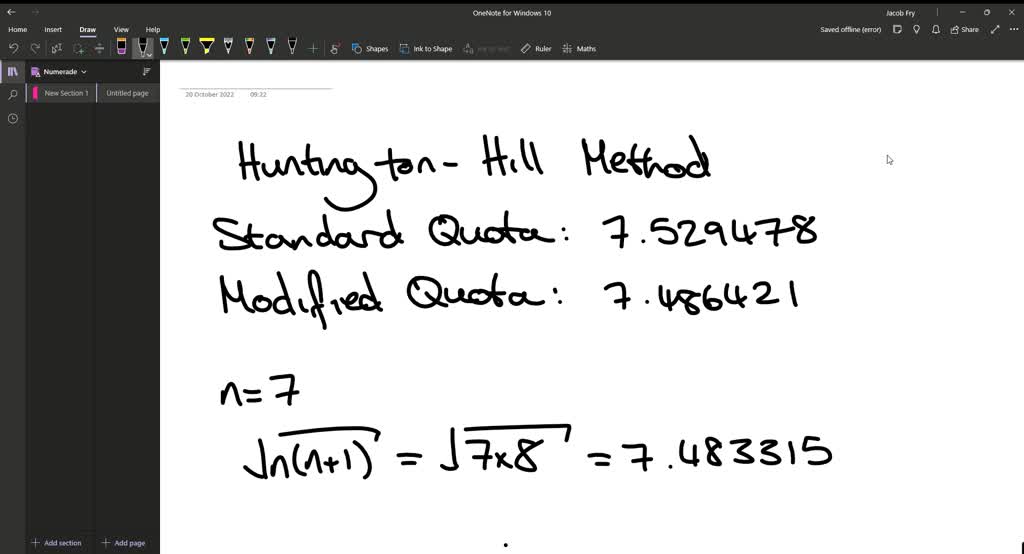 OneNote for Windows 10
Jacob Fry
Home Insert Draw View Help
Saved offline (error) Share
Shapes Ink to Shape Ink to Text Ruler Maths
Numerade
New Section 1 Untitled page
20 October 2022 09:22
Huntington-Hill Method
Standard Quota: 7.529478
Modified Quota: 7.486421
n=7
√n(n+1) = √7×8 = 7.483315
+ Add section + Add page